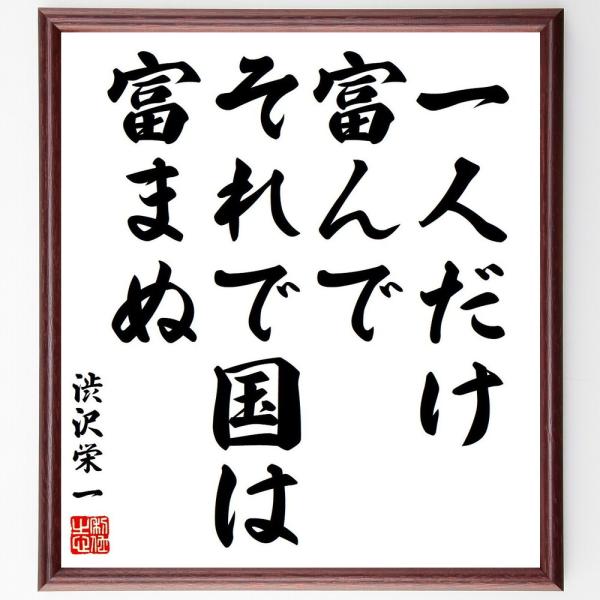 一人だけ
富んで
それで国は
富まぬ
渋沢栄一